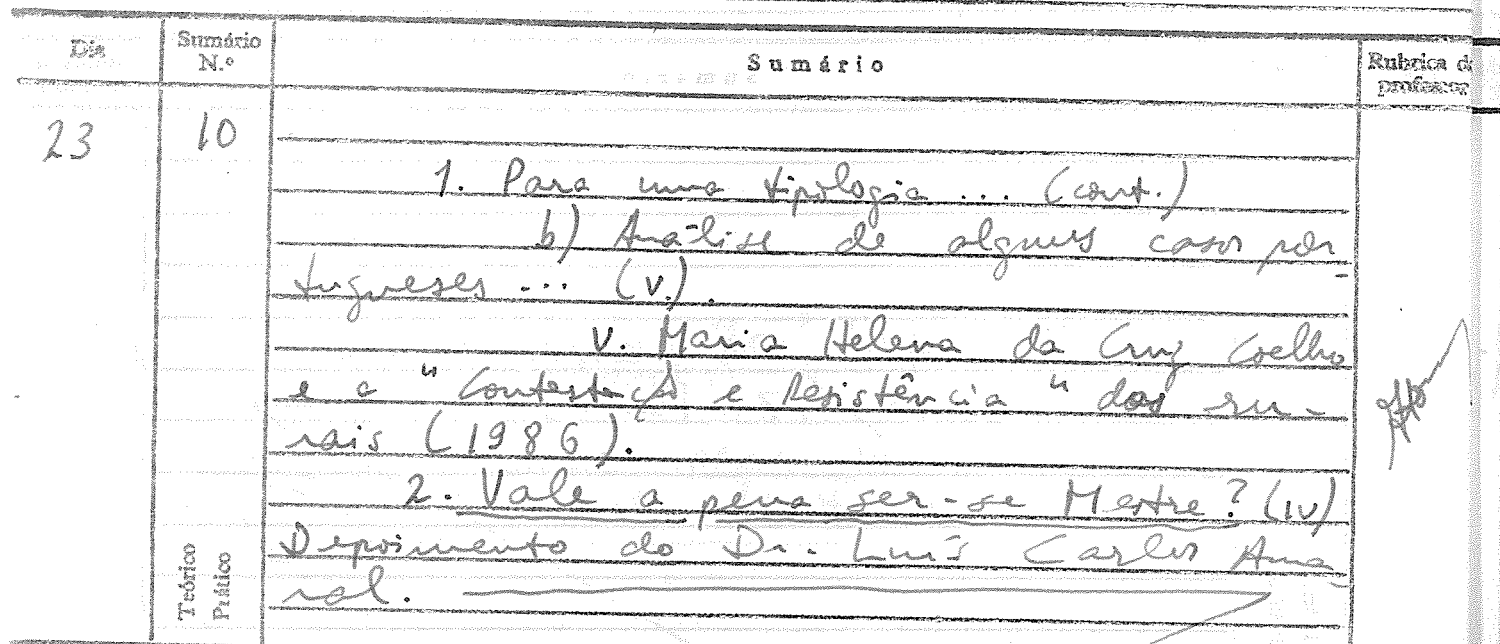 Dia
Sumário
N.º
Sumário
Rubrica do
professor
23
10
1. Para uma tipologia ... (cont.)
b) Análise de alguns casos por-
tugueses ... (v).
v. Maria Helena da Cruz Coelho
e a "Contestação e Resistência" dos ru-
rais (1986).
2. Vale a pena ser-se Mestre? (iv)
Depoimento do Dr. Luís Carlos Ama-
ral.
Teórico
Prático